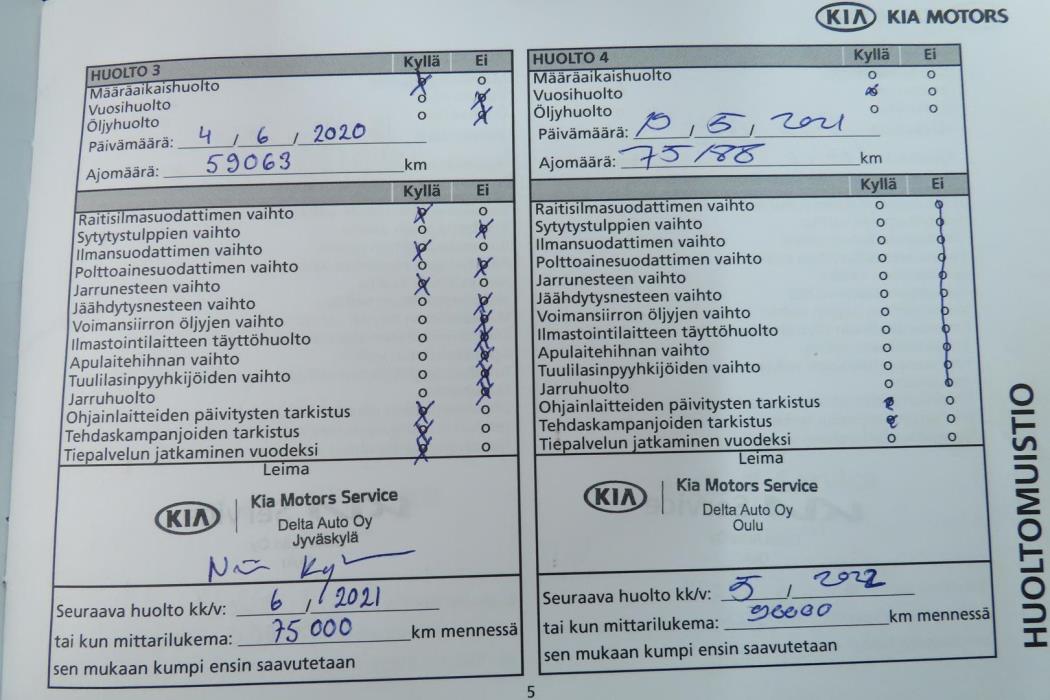 KIA KIA MOTORS
HUOLTO 3 Kyllä Ei
Määräaikaishuolto
Vuosihuolto
Öljyhuolto
Päivämäärä: 4 / 6 / 2020
Ajomäärä: 59063 km
Kyllä Ei
Raitisilmasuodattimen vaihto
Sytytystulppien vaihto
Ilmansuodattimen vaihto
Polttoainesuodattimen vaihto
Jarrunesteen vaihto
Jäähdytysnesteen vaihto
Voimansiirron öljyjen vaihto
Ilmastointilaitteen täyttöhuolto
Apulaitehihnan vaihto
Tuulilasinpyyhkijöiden vaihto
Jarruhuolto
Ohjainlaitteiden päivitysten tarkistus
Tehdaskampanjoiden tarkistus
Tiepalvelun jatkaminen vuodeksi
Leima
KIA Kia Motors Service
Delta Auto Oy
Jyväskylä
Seuraava huolto kk/v: 6 / 2021
tai kun mittarilukema: 75 000 km mennessä
sen mukaan kumpi ensin saavutetaan
HUOLTO 4 Kyllä Ei
Määräaikaishuolto
Vuosihuolto
Öljyhuolto
Päivämäärä: / 5 / 2021
Ajomäärä: 75188 km
Kyllä Ei
Raitisilmasuodattimen vaihto
Sytytystulppien vaihto
Ilmansuodattimen vaihto
Polttoainesuodattimen vaihto
Jarrunesteen vaihto
Jäähdytysnesteen vaihto
Voimansiirron öljyjen vaihto
Ilmastointilaitteen täyttöhuolto
Apulaitehihnan vaihto
Tuulilasinpyyhkijöiden vaihto
Jarruhuolto
Ohjainlaitteiden päivitysten tarkistus
Tehdaskampanjoiden tarkistus
Tiepalvelun jatkaminen vuodeksi
Leima
KIA Kia Motors Service
Delta Auto Oy
Oulu
Seuraava huolto kk/v: 5 / 2022
tai kun mittarilukema: 90000 km mennessä
sen mukaan kumpi ensin saavutetaan
HUOLTOMUISTIO
5